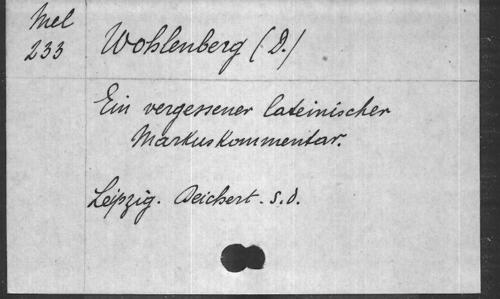 Mel
233
Wohlenberg (D.)
Ein vergessener lateinischer
Markuskommentar.
Leipzig. Deichert. s.d.